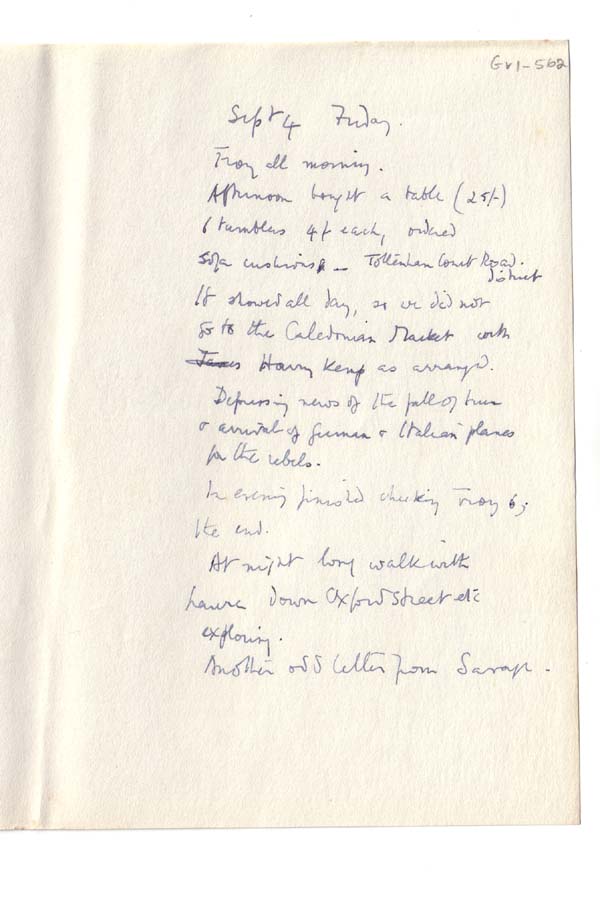 Gv1-562
Sept 4 Friday.
Troy all morning.
Afternoon bought a table (25/-)
6 tumblers 4/- each, ordered
sofa cushions – Tottenham Court Road.
district
It showed all day, so we did not
go to the Caledonian Market with
James Harry Kemp as arranged.
Depressing news of the fall of Irun
& arrival of German & Italian planes
for the rebels.
In evening finished checking Troy 6;
the end.
At night long walk with
Laura down Oxford Street etc
exploring.
Another odd letter from Savage.